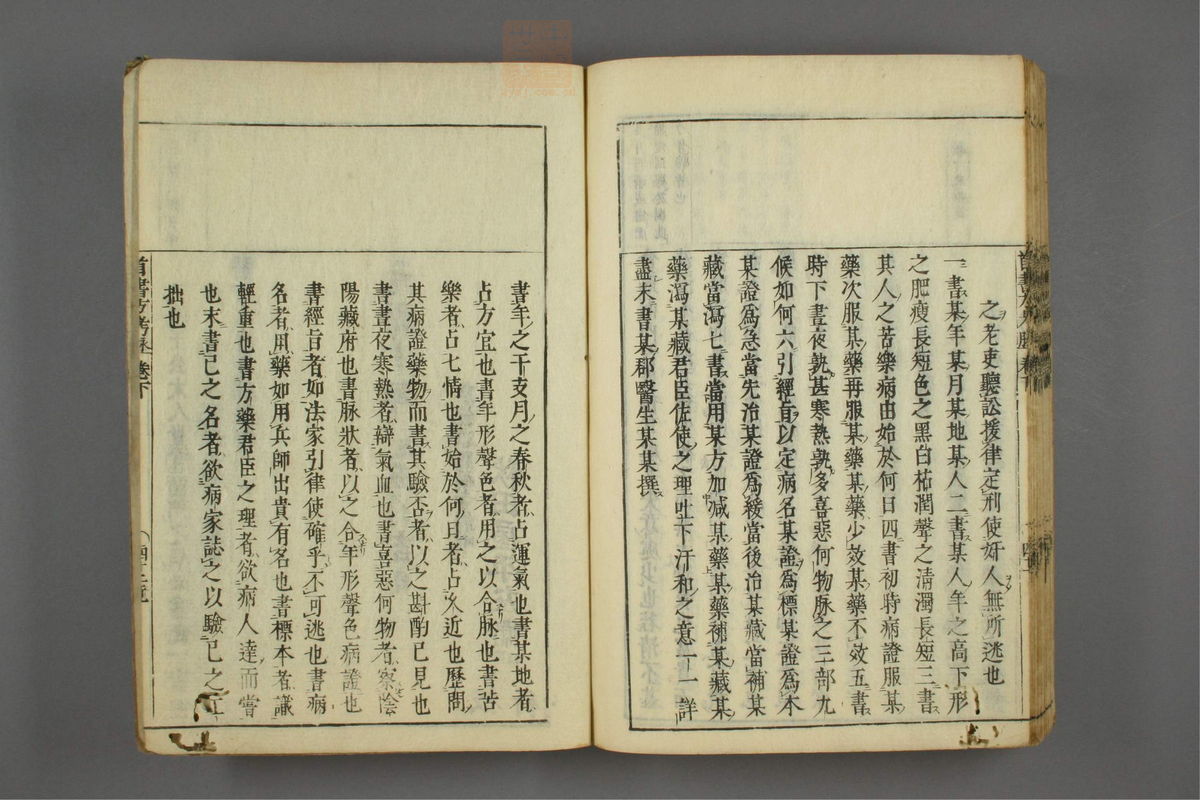 之老吏聽訟援律定刑使奸人無所逃也
一書某年某月某地某人二書某人年之高下形
之肥瘦長短色之黑白枯潤聲之清濁長短三書
其人之苦樂病由始於何日四書初時病證服某
藥次服某藥再服某藥某藥少效某藥不效五書
時下晝夜孰甚寒熱孰多喜惡何物脉之三部九
候如何六引經旨以定病名某證爲標某證爲本
某證爲急當先治某證爲緩當後治某藏當補某
藏當瀉七書當用某方加减某藥某藥補某藏某
藥瀉某藏君臣佐使之理吐下汗和之意一一詳
盡末書某郡醫生某某撰
書年之干支月之春秋者占運氣也書某地者
占方宜也書年形聲色者用之以合脉也書苦
樂者占七情也書始於何日者占久近也歷問
其病證藥物而書其驗否者以之斟酌已見也
書晝夜寒熱者辯氣血也書喜惡何物者察陰
陽藏府也書脉狀者以之合年形聲色病證也
書經旨者如法家引律使確乎不可逃也書病
名者用藥如用兵師出貴有名也書標本者識
輕重也書方藥君臣之理者欲病人達而嘗
也末書已之名者欲病家誌之以驗已之工
拙也
首書方考脉 卷下